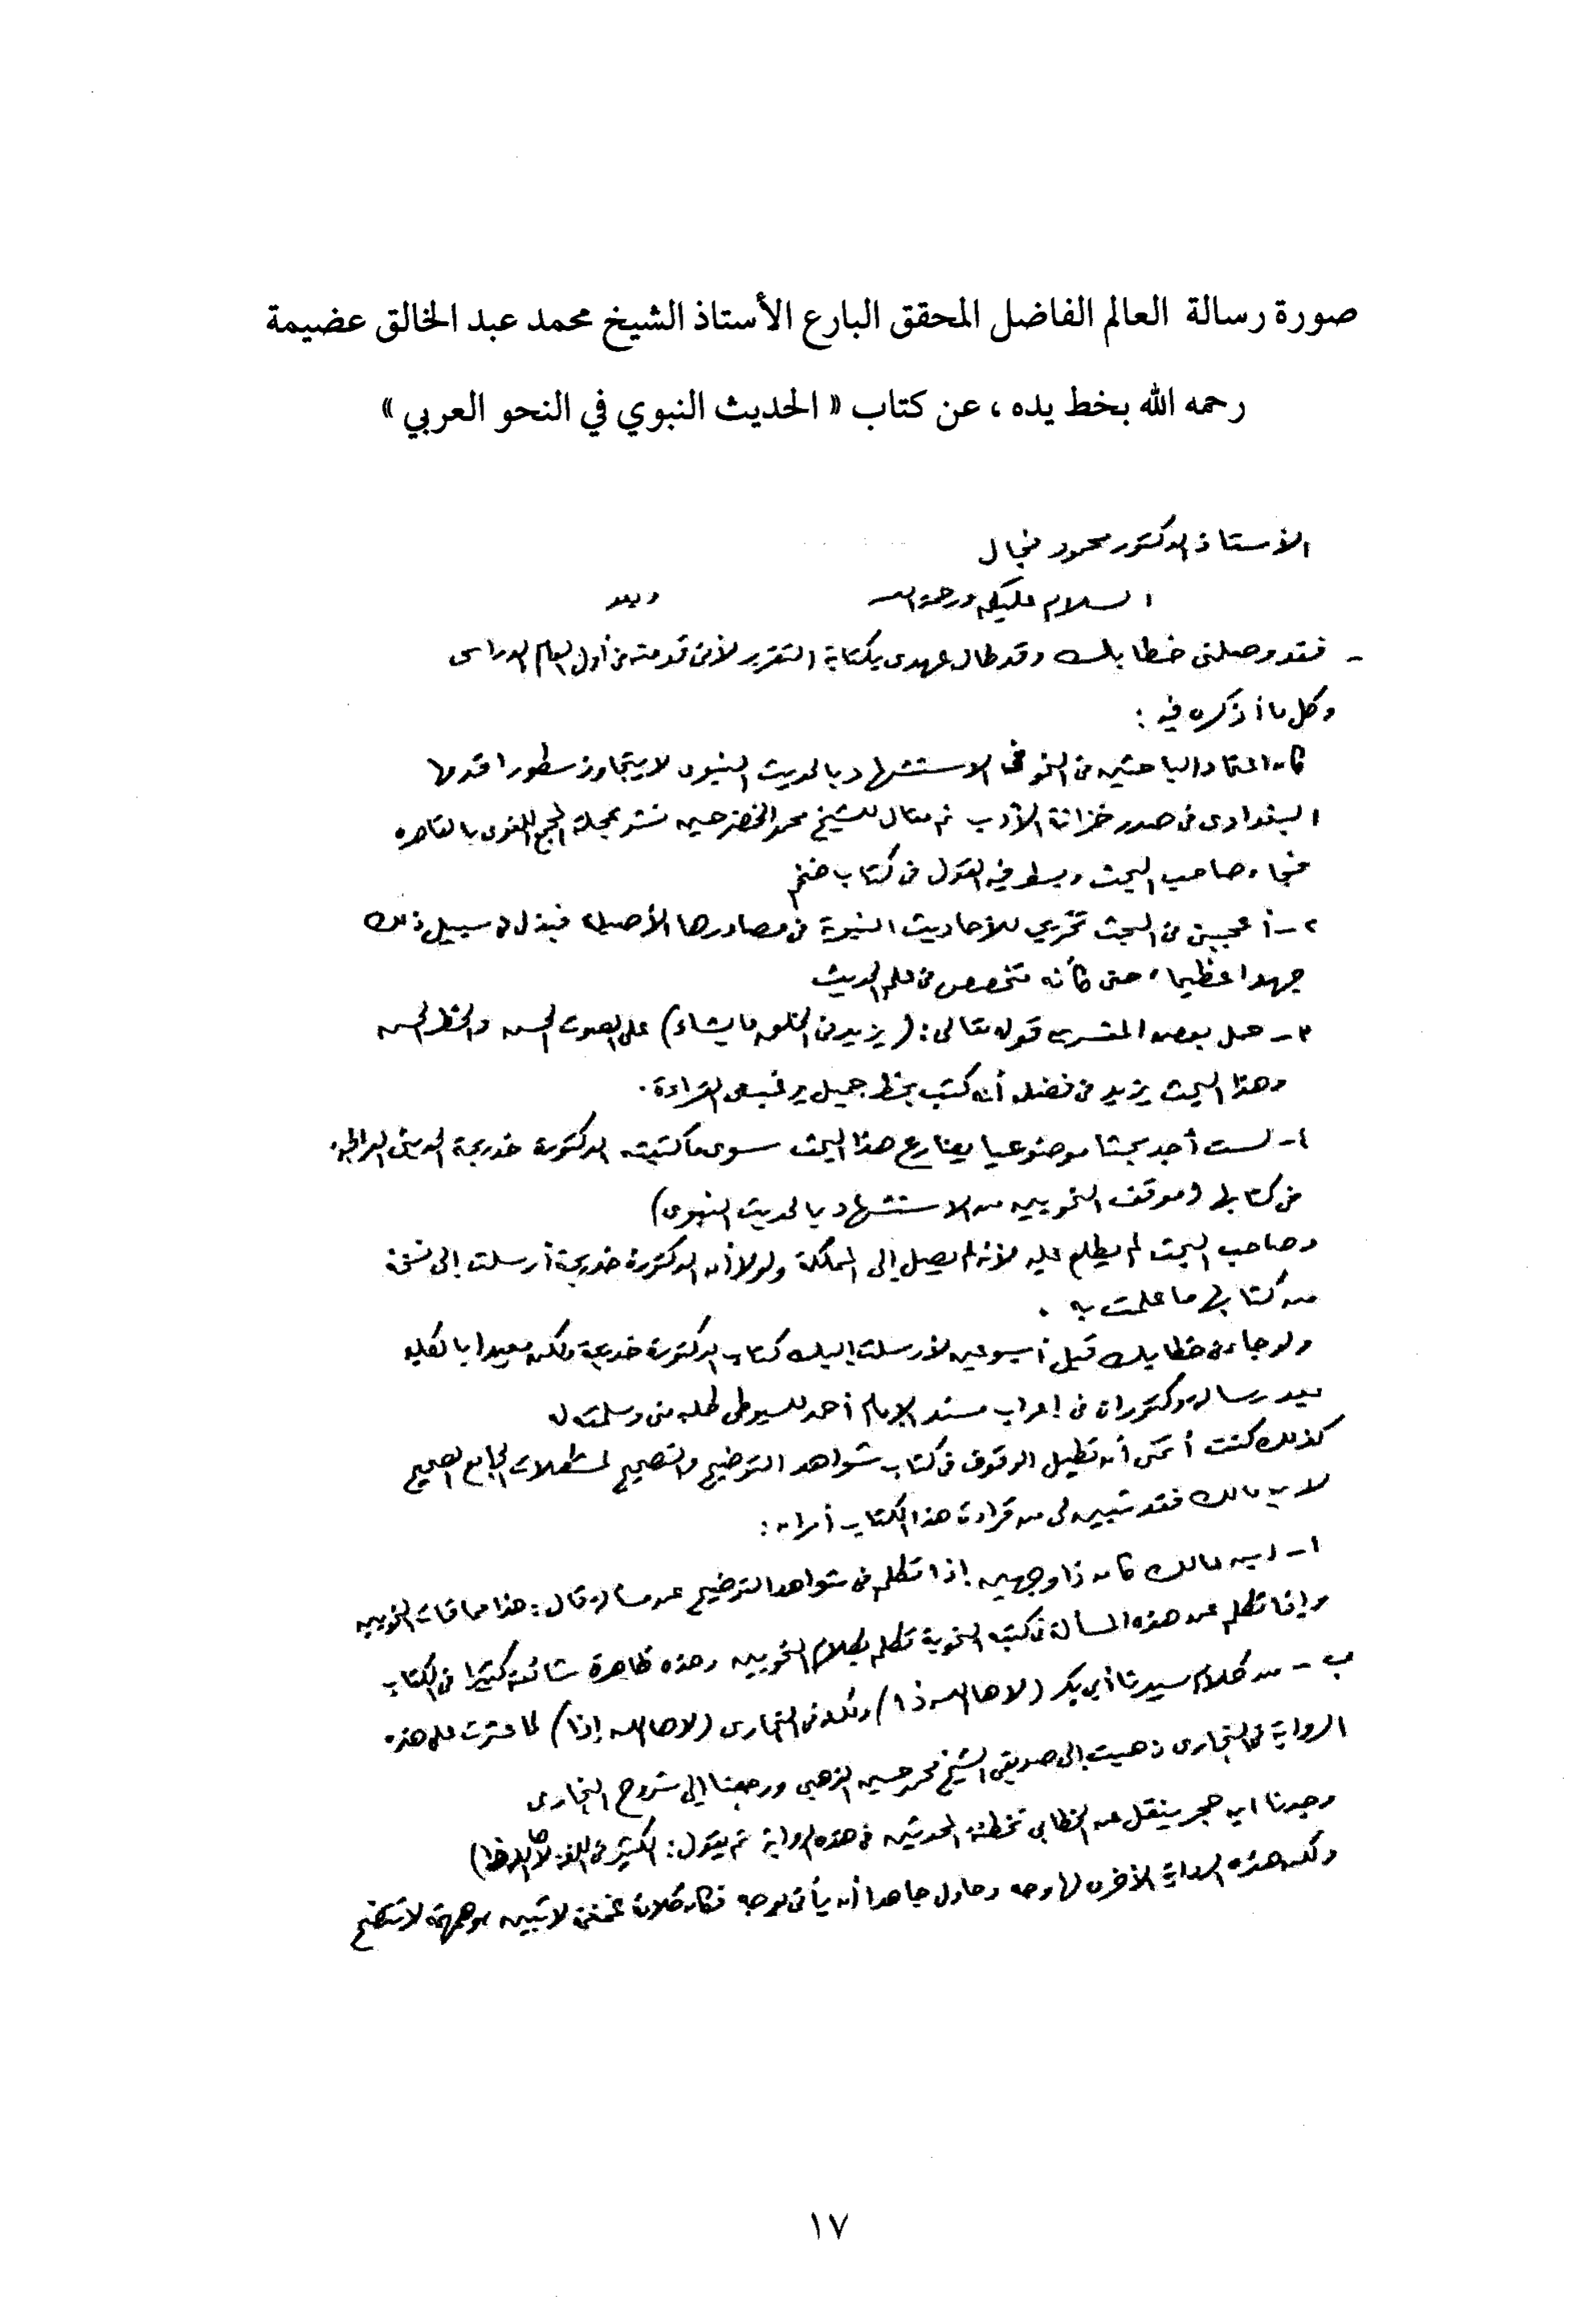 صورة رسالة العالم الفاضل المحقق البارع الأستاذ الشيخ محمد عبد الخالق عضيمة
رحمه الله بخط يده ، عن كتاب « الحديث النبوي في النحو العربي »
الأستاذ الدكتور محمود فجال
السلام عليكم ورحمة الله وبعد
- فقد وصلنى خطابك وقد طال عهدى بكتابة التقرير لأنى قدمته فى أول العام الدراسى
وكل ما أذكره فيه :
كان اعتماد الباحثين فى النحو فى الاستشهاد بالحديث النبوى لا يتجاوز سطورا قدمها
البغدادى فى صدر خزانة الأدب ثم مقال للشيخ محمد الخضر حسين نشر بمجلة المجمع اللغوى بالقاهرة
فجاء صاحب البحث وبسط فيه القول فى كتاب ضخم
٢ - أعجبنى فى البحث تخريج للأحاديث النبوية فى مصادرها الأصيلة فبذل فى سبيل ذلك
جهدا عظيما ، حتى كأنه متخصص فى علم الحديث
٣ - حمل بعض المفسرين قوله تعالى : ( يزيد فى الخلق ما يشاء ) على الصوت الحسن والخط الحسن
وهذا البحث يزيد فى فضله أنه كتب بخط جميل يرغب فى القراءة .
٤ - لست أجد بحثا موضوعيا يضارع هذا البحث سوى ما كتبته الدكتورة خديجة الحديثى العراقية
فى كتابها ( موقف النحويين من الاستشهاد بالحديث النبوى )
وصاحب البحث لم يطلع عليه لأنه لم يصل إلى المملكة ولولا أن الدكتورة خديجة أرسلت إلى نسخة
من كتابها ما علمت به .
ولو جاءنى خطابك قبل أسبوعين لأرسلت إليك كتاب الدكتورة خديجة ولكن معيدا بالكلية
يعد رسالة دكتوراه فى إعراب مسند الإمام أحمد للسيوطى طلبه منى وسلمته له
كذلك كنت أتمنى أن تطيل الوقوف فى كتاب شواهد التوضيح والتصحيح لمشكلات الجامع الصحيح
لابن مالك فقد تبين لى من قراءة هذا الكتاب أمران :
١ - ابن مالك كان ذا وجهين إذا تكلم فى شواهد التوضيح عن مسألة قال : هذا مما فات النحويين
وإذا تكلم عن هذه المسألة فى كتبه النحوية تكلم بكلام النحويين وهذه ظاهرة شائعة كثيرا فى الكتاب
ب - من كلام سيدنا أبى بكر ( لا ها الله ذا ) ولكنه فى البخارى ( لا ها الله إذا ) لما عثرت على هذه
الرواية فى البخارى ذهبت إلى صديقى الشيخ محمد حسين الذهبى ورجعنا إلى شروح البخارى
وجدنا ابن حجر ينقل عن الخطابى تخطئة المحدثين فى هذه الرواية ثم يقول : الكثير فى اللغة لا ها الله ذا )
ولكن هذه الرواية الأخرى لها وجه وحاول جاهدا أن يأتى بوجه فكان كلامه لا تبين